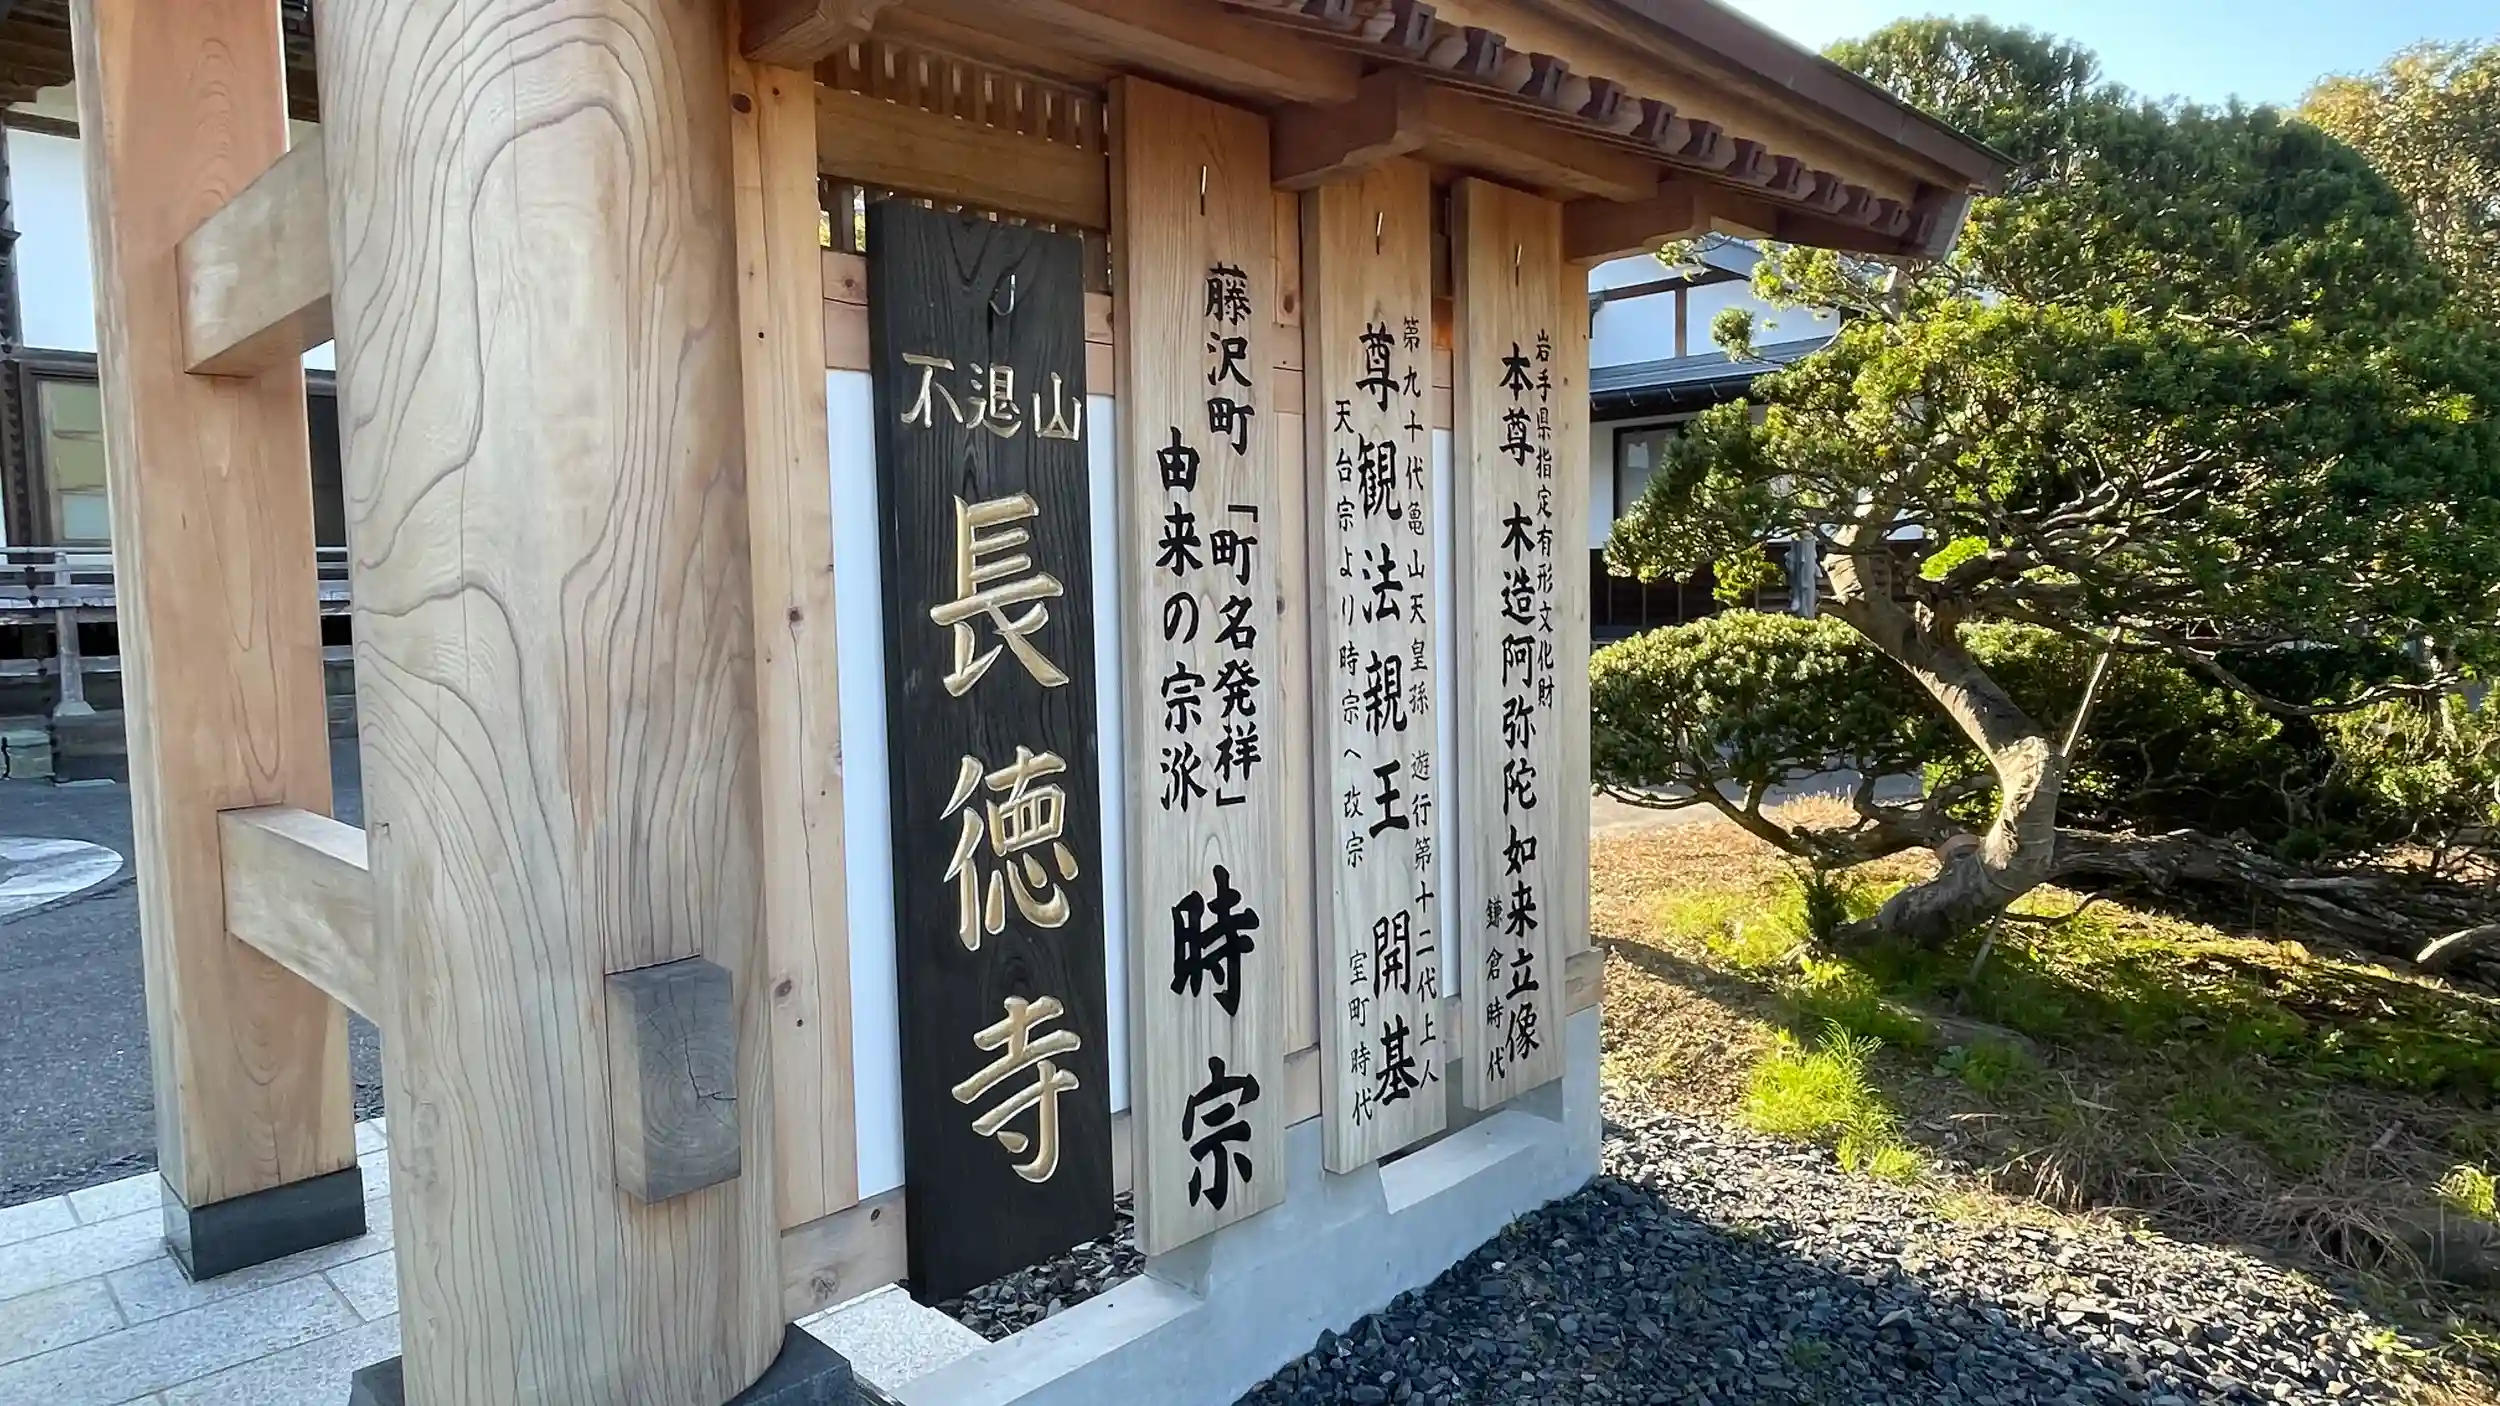 不退山
長徳寺
藤沢町「町名発祥」
由来の宗派
時宗
第九十代亀山天皇孫 遊行第十二代上人
尊観法親王 開基
天台宗より時宗へ改宗 室町時代
岩手県指定有形文化財
本尊 木造阿弥陀如来立像
鎌倉時代